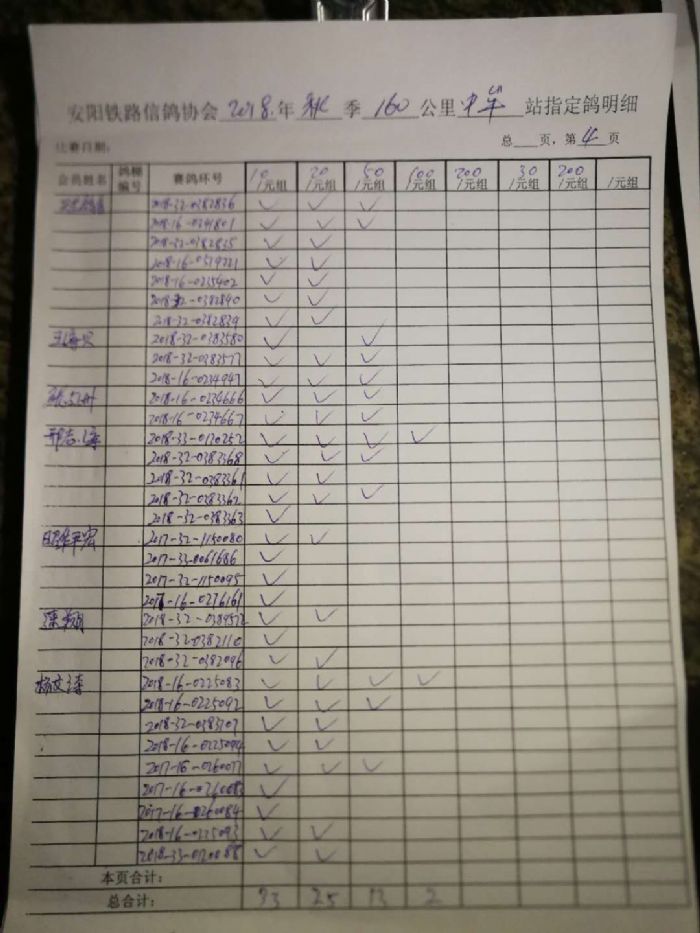 安阳铁路信鸽协会 2018.年 秋 季 160 公里 中牟 站指定鸽明细
比赛日期: 总 页,第 4 页
会员姓名 鸽棚编号 赛鸽环号 10/元组 20/元组 50/元组 100/元组 200/元组 30/元组 200/元组 /元组
2018-32-0382836 ✓ ✓ ✓
2018-16-0241801 ✓ ✓ ✓
2018-32-0382835 ✓ ✓
✓ ✓
2018-16-0235402 ✓ ✓
2018-32-0382840 ✓ ✓
2018-32-0382839 ✓ ✓
2018-32-0383580 ✓ ✓
2018-32-0383577 ✓ ✓ ✓
2018-16-0234947 ✓ ✓ ✓
2018-16-0234666 ✓ ✓ ✓
2018-16-0234667 ✓ ✓ ✓
邢志海 2018-33-0120252 ✓ ✓ ✓ ✓
2018-32-0383368 ✓ ✓ ✓
2018-32-0383361 ✓ ✓
2018-32-0383362 ✓ ✓ ✓
2018-32-0383363 ✓
2017-32-1150080 ✓ ✓
2017-33-0061686 ✓
2017-32-1150095 ✓
✓
✓ ✓
2018-32-0382110 ✓
2018-32-0382096 ✓ ✓
2018-16-0225083 ✓ ✓ ✓ ✓
2018-16-0225092 ✓ ✓ ✓
2018-32-0383107 ✓ ✓
2018-16-0225094 ✓ ✓
2017-16-0260077 ✓ ✓ ✓
✓
2017-16-0260084 ✓
2018-16-0225093 ✓ ✓
2018-33-0120088 ✓ ✓
本页合计:
总合计: 33 25 13 2